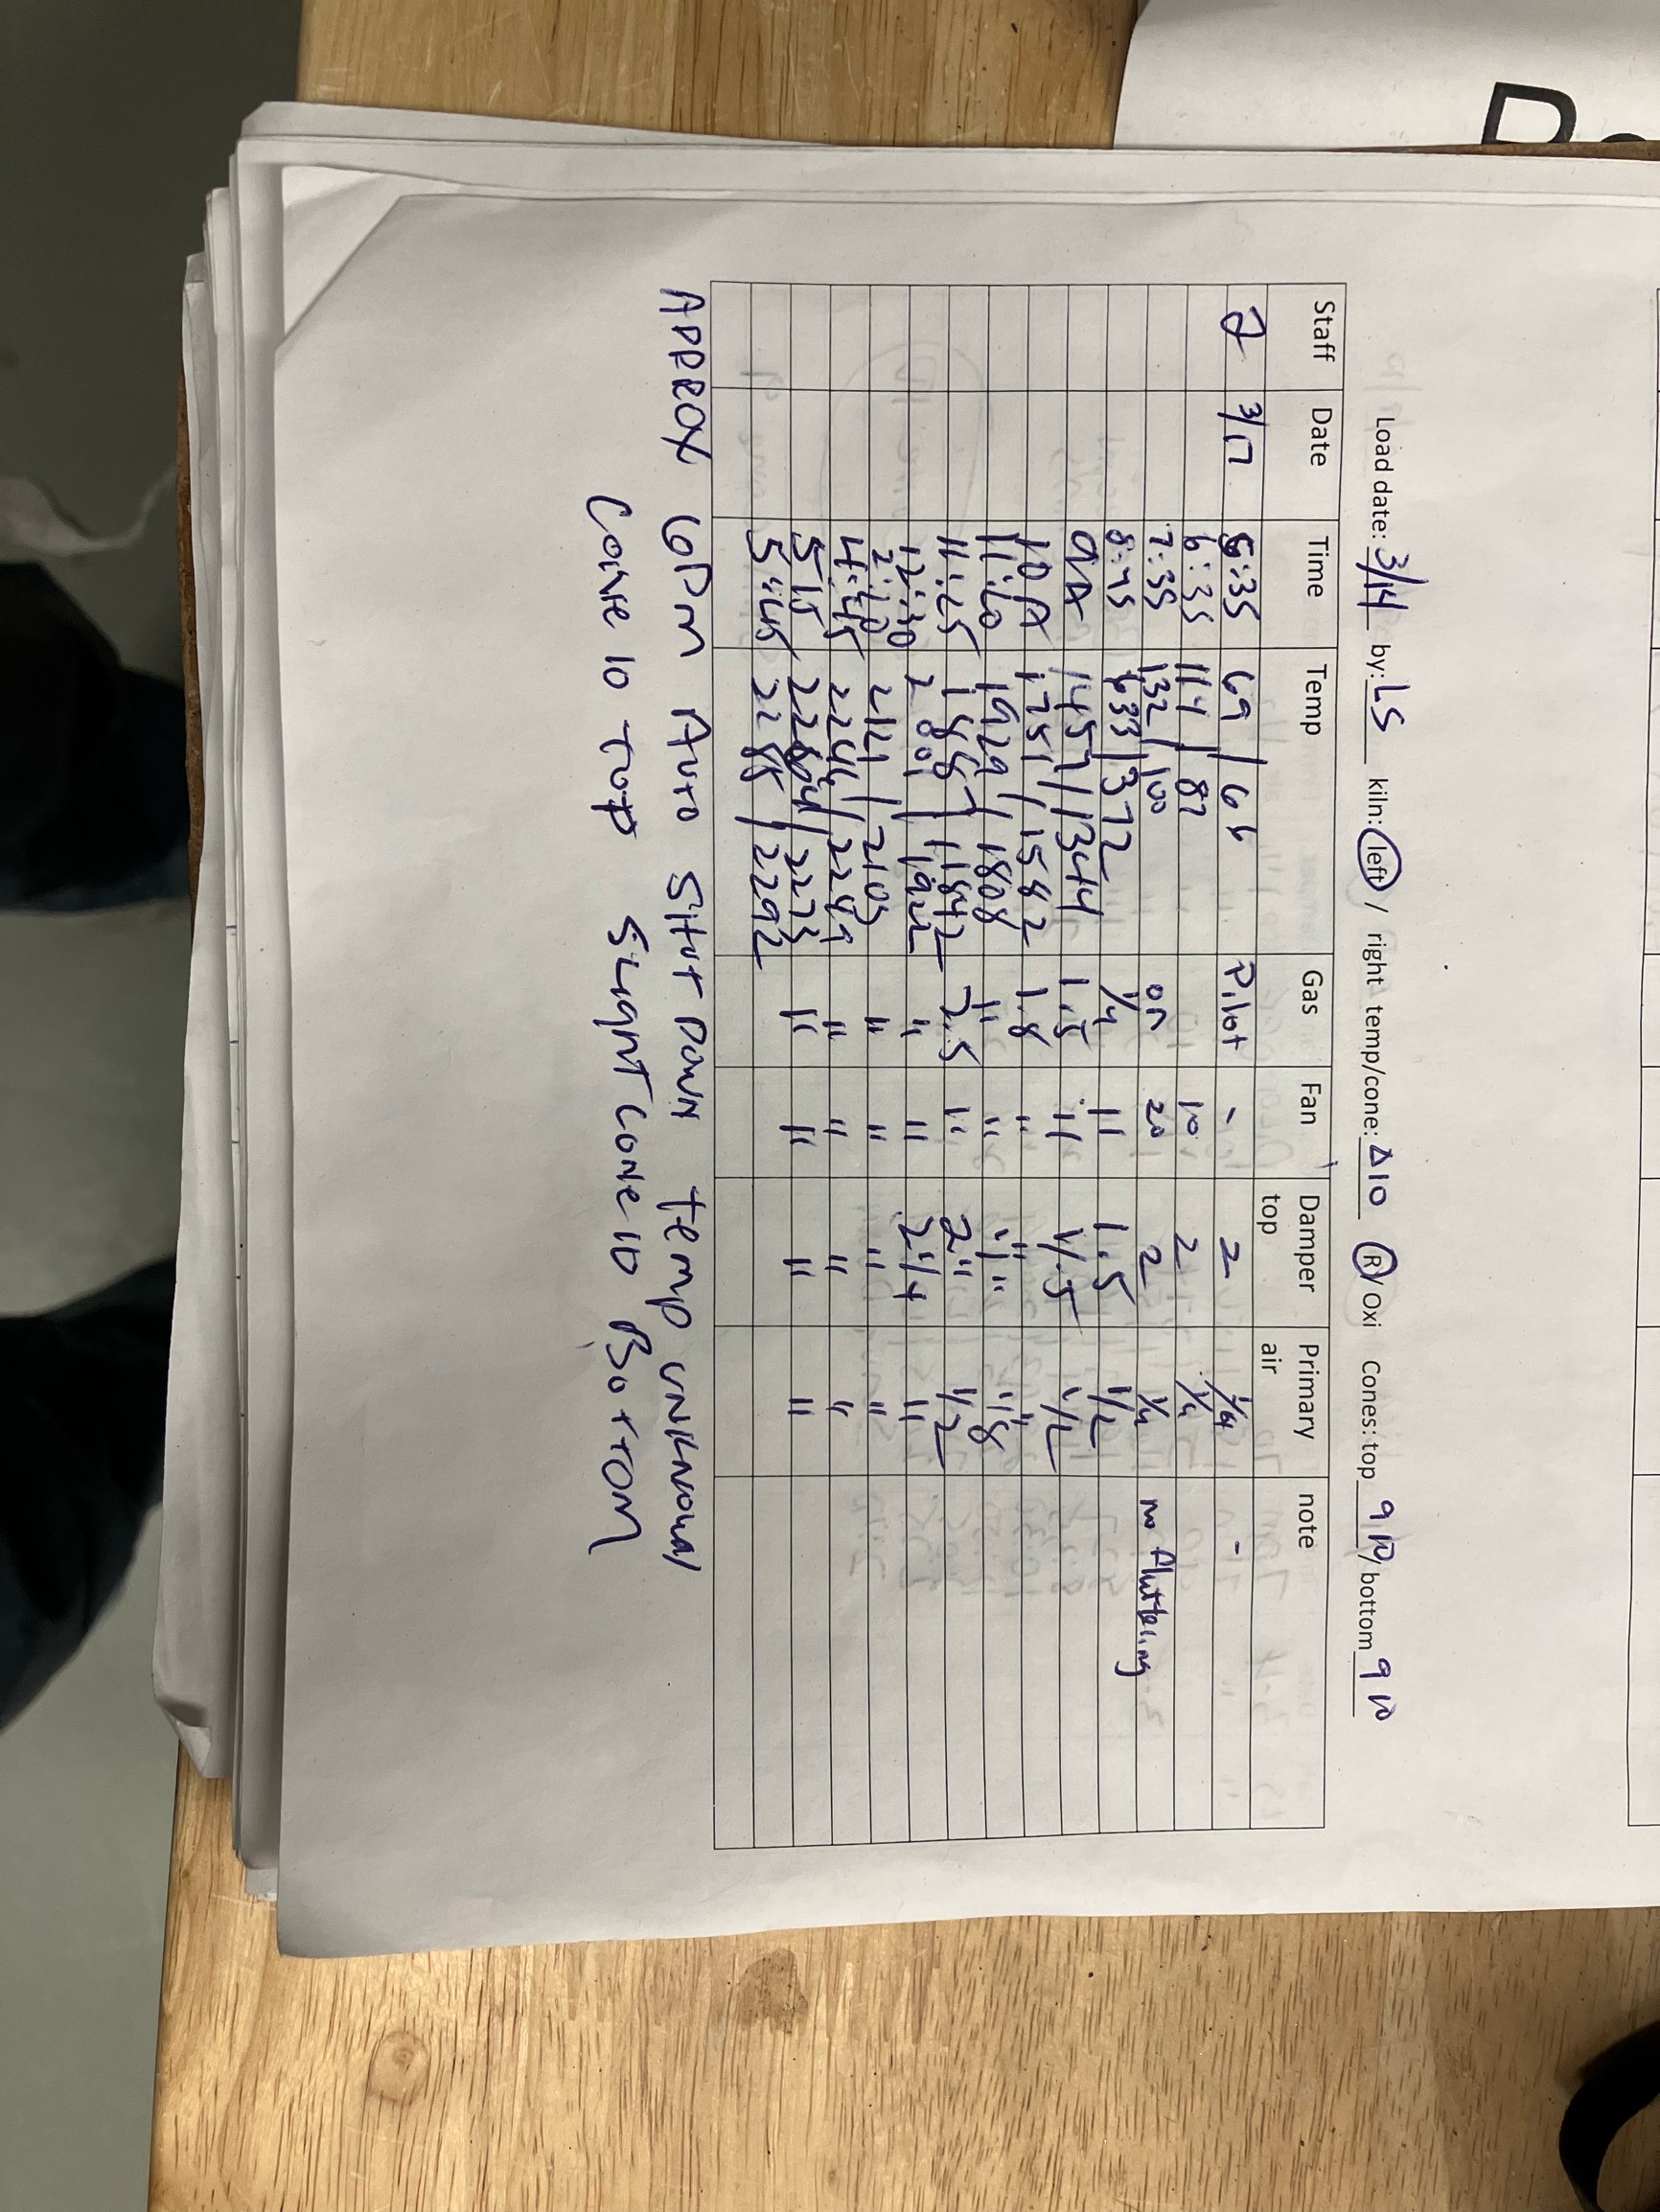 Load date: 3/14 by: LS kiln: left / right temp/cone: Δ10 R / Oxi Cones: top 9 10 / bottom 9 10
Staff Date Time Temp Gas Fan Damper top Primary air note
3/17 5:35 69 / 66 Pilot - 2 1/4 -
6:35 114 / 87 10 2 1/4
7:35 132 / 100 on 20 2 1/4 no fluttering
8:45 633 / 372 1/4 " 1.5 1/2
9A 1457 / 1344 1.5 " 1/.5 1/2
10 A 1751 / 1582 1.8 "
11:20 1929 / 1808 " " " "
11:25 1867 / 1842 2.5 " 2" 1/2
12:30 2001 / 1922 " " 2 1/4 "
2:10 2121 / 2103 " " " "
4:45 2246 / 2249 " " " "
515 2273 " " " "
5:45 2288 / 2292
APPROX 6PM AUTO SHUT DOWN temp UNKNOWN
CONE 10 TOP SLIGHT CONE 10 BOTTOM